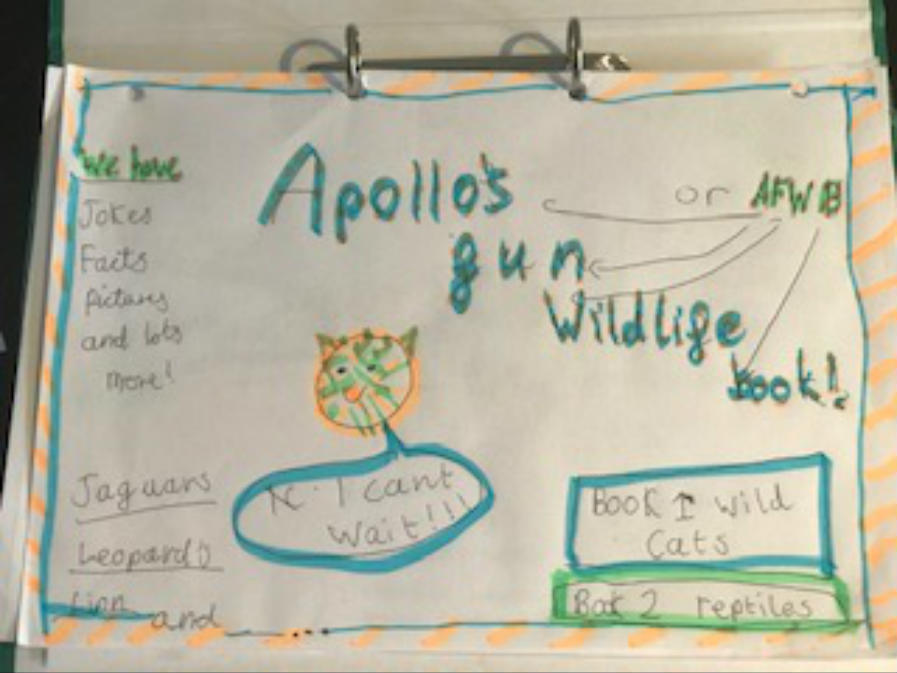 We have
Jokes
Facts
Pictures
and lots
more!
Apollo's
gun
Wildlife
book!
or AFWB
I cant
Wait!!!
Jaguars
Leopards
Lion and
Book 1 wild
Cats
Book 2 reptiles